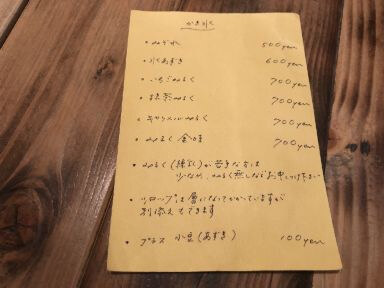 かき氷
・みぞれ 500yen
・氷あずき 600yen
・いちごみるく 700yen
・抹茶みるく 700yen
・キャラメルみるく 700yen
・みるく金時 700yen
・みるく(練乳)が苦手な方は
少なめ、みるく無しなどお申しつけ下さい
・シロップは層になってかかっていますが
別添えもできます
・プラス 小豆(あずき) 100yen